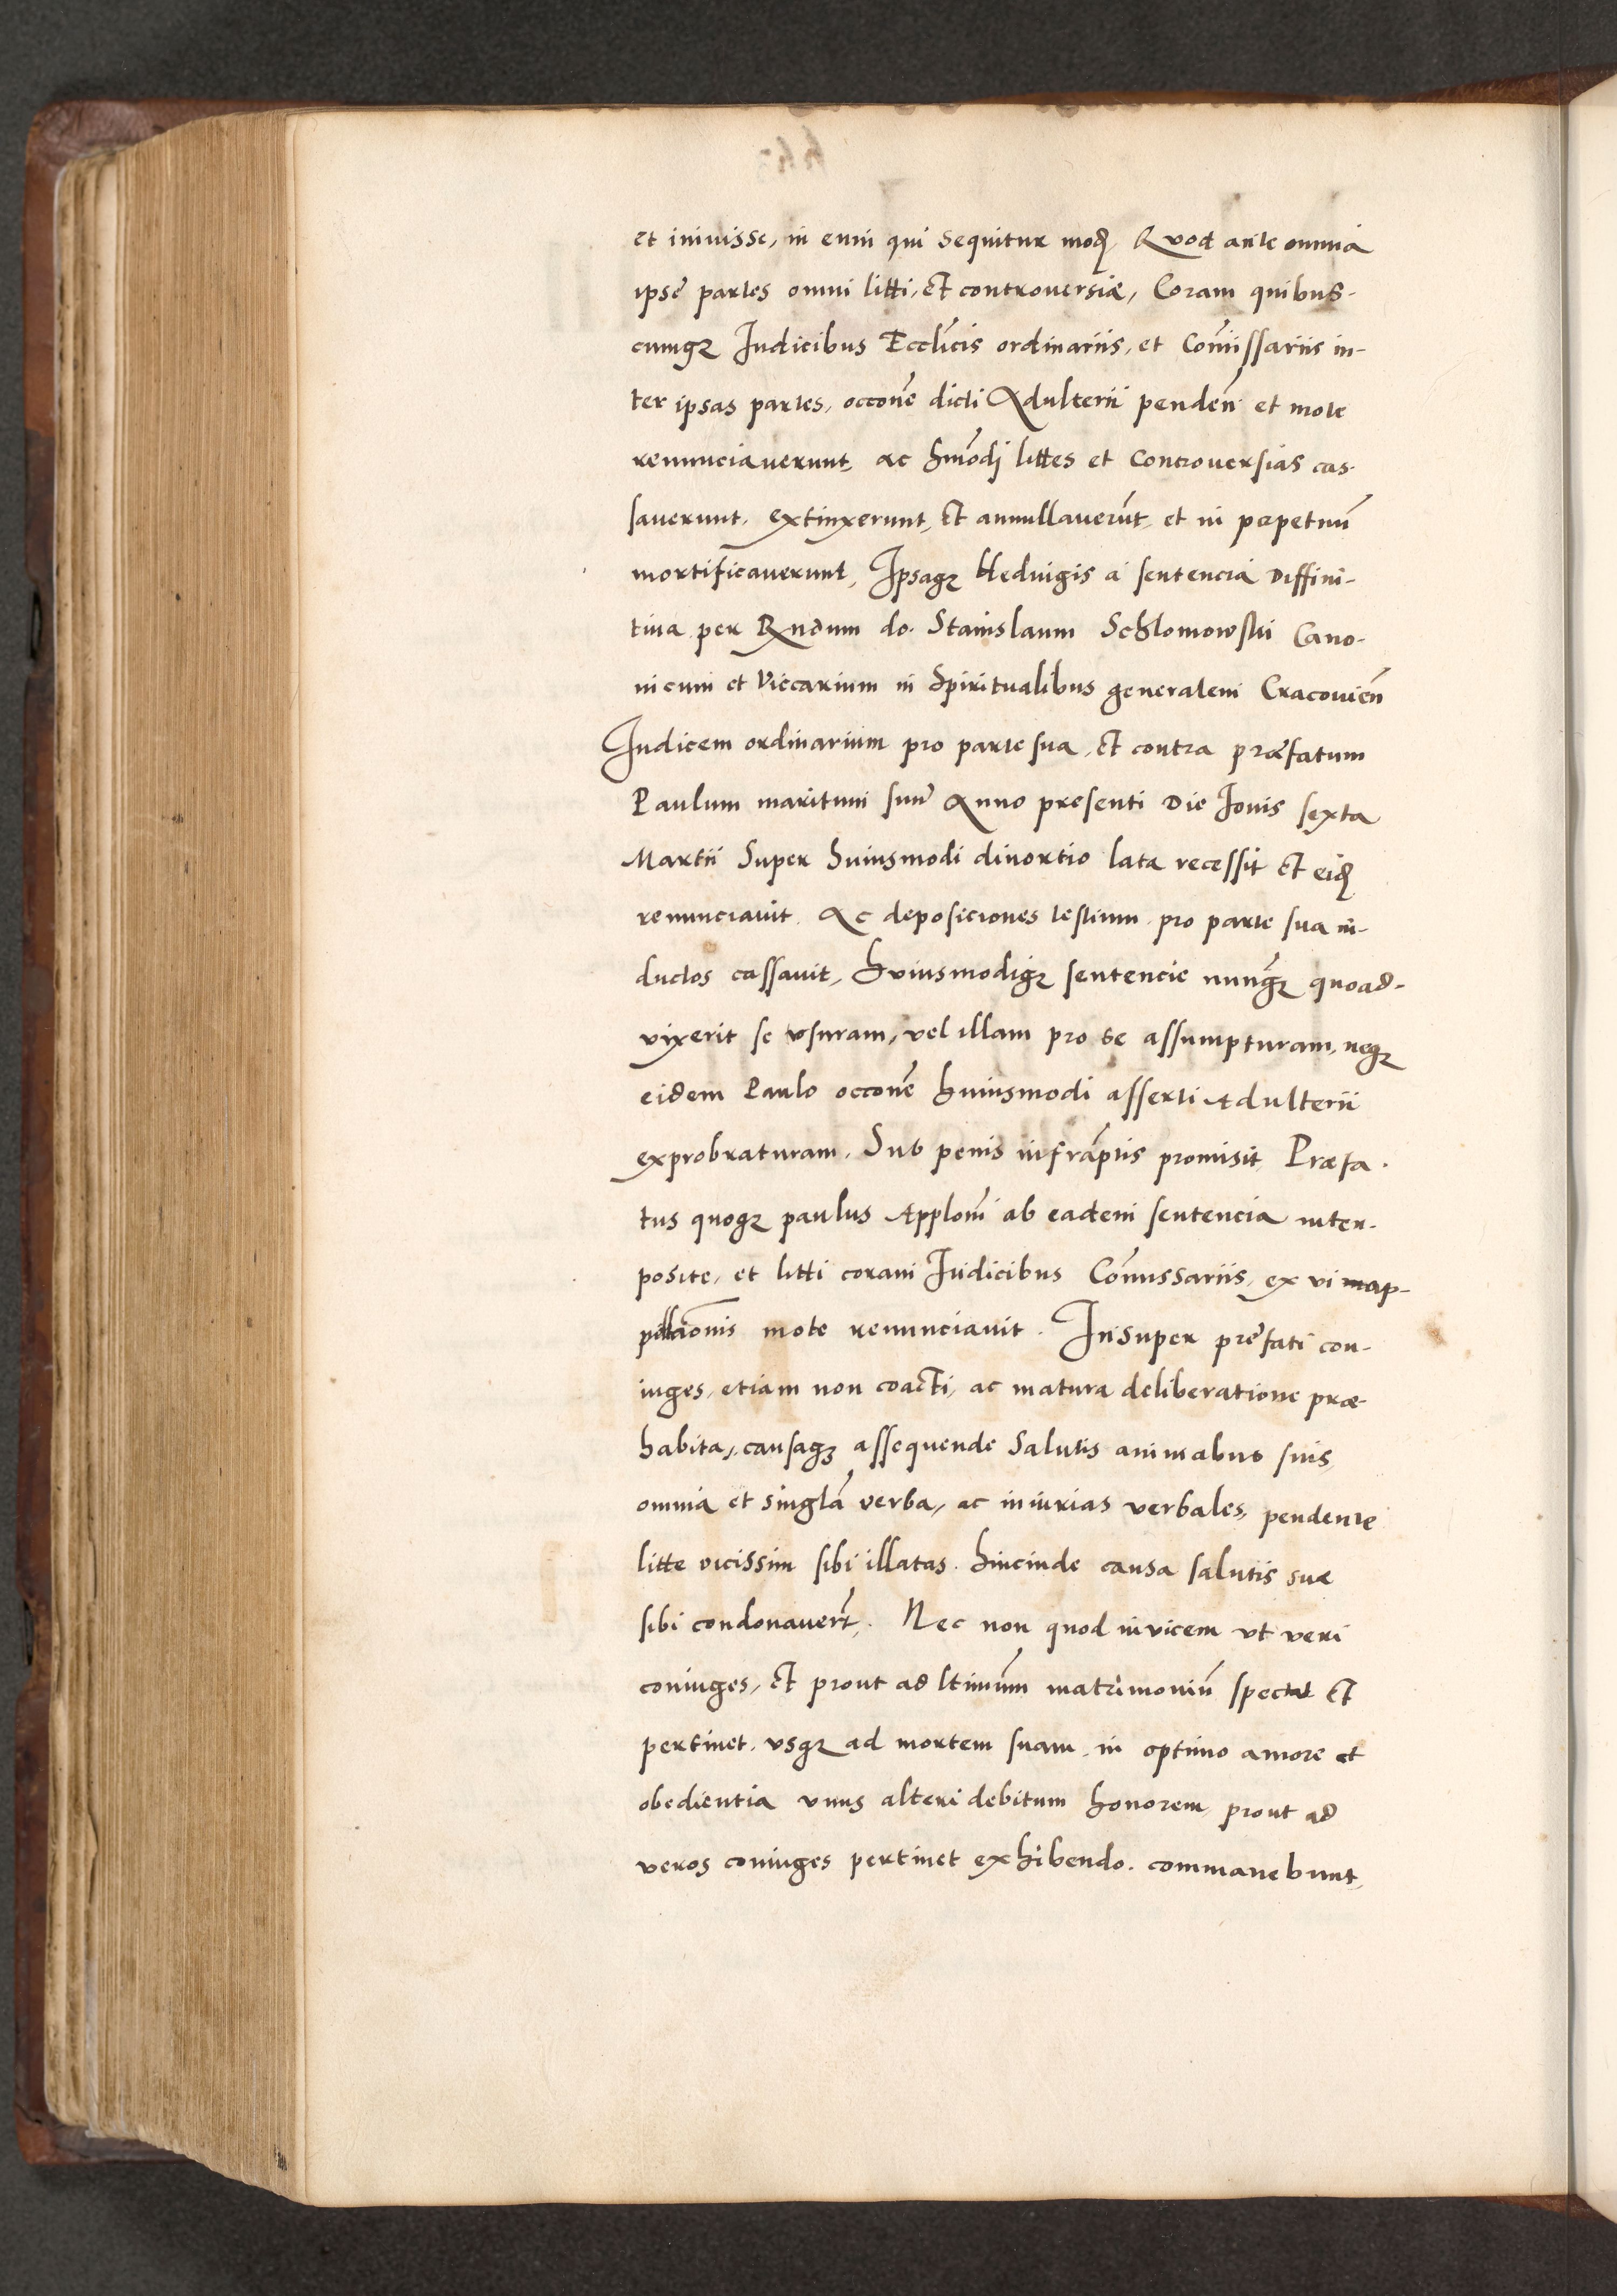 et iniuisse, in eum qui sequitur modũ Quod ante omnia
ipsę partes omni litti, et controuersiæ, Coram quibus-
cumqꝫ Iudicibus Ecclĩcis ordinariis, et Cõmissariis in-
ter ipsas partes, occonẽ dicti Adulterii pendeñ et mote
renunciauerunt, ac hmõdi littes et Controuersias cas-
sauerunt, extinxerunt, et annullauerũt, et in perpetuũ
mortificauerunt, Ipsaqꝫ Heduigis a sentencia Diffini-
tiua per Rndum do. Stanislaum Schlomowski Cano-
nicum et Viccarium in Spiritualibus generalem Cracouieñ
Iudicem ordinarium pro parte sua, et contra præfatum
Paulum maritum suũ Anno presenti Die Iouis sexta
Martii Super huiusmodi diuortio lata recessit et eidẽ
renunciauit. Ac deposiciones testium pro parte sua in-
ductos cassauit, Huiusmodiqꝫ sentencie nunqꝫ quoad-
vixerit se vsuram, vel illam pro se assumpturam, neqꝫ
eidem Paulo occonẽ huiusmodi asserti Adulterii
exprobraturam. Sub penis infrãptis promisit, Præfa-
tus quoqꝫ paulus Applonĩ ab eadem sentencia inter-
posite, et litti coram Iudicibus Cõmissariis, ex vi ap-
pellacionis mote renunciauit. Insuper prefati con-
iuges, etiam non coacti, ac matura deliberatione præ-
habita, causaqꝫ assequende Salutis animabus suis,
omnia et singlã verba, ac iniurias verbales, pendente
litte vicissim sibi illatas. hincinde causa salutis suæ
sibi condonauert̃. Nec non quod inuicem vt veri
coniuges, et prout ad ltimũm matrimoniũ spectat et
pertinet, vsqꝫ ad mortem suam, in optimo amore et
obedientia vnus alteri debitum honorem, prout ad
veros coniuges pertinet exhibendo. commanebunt,